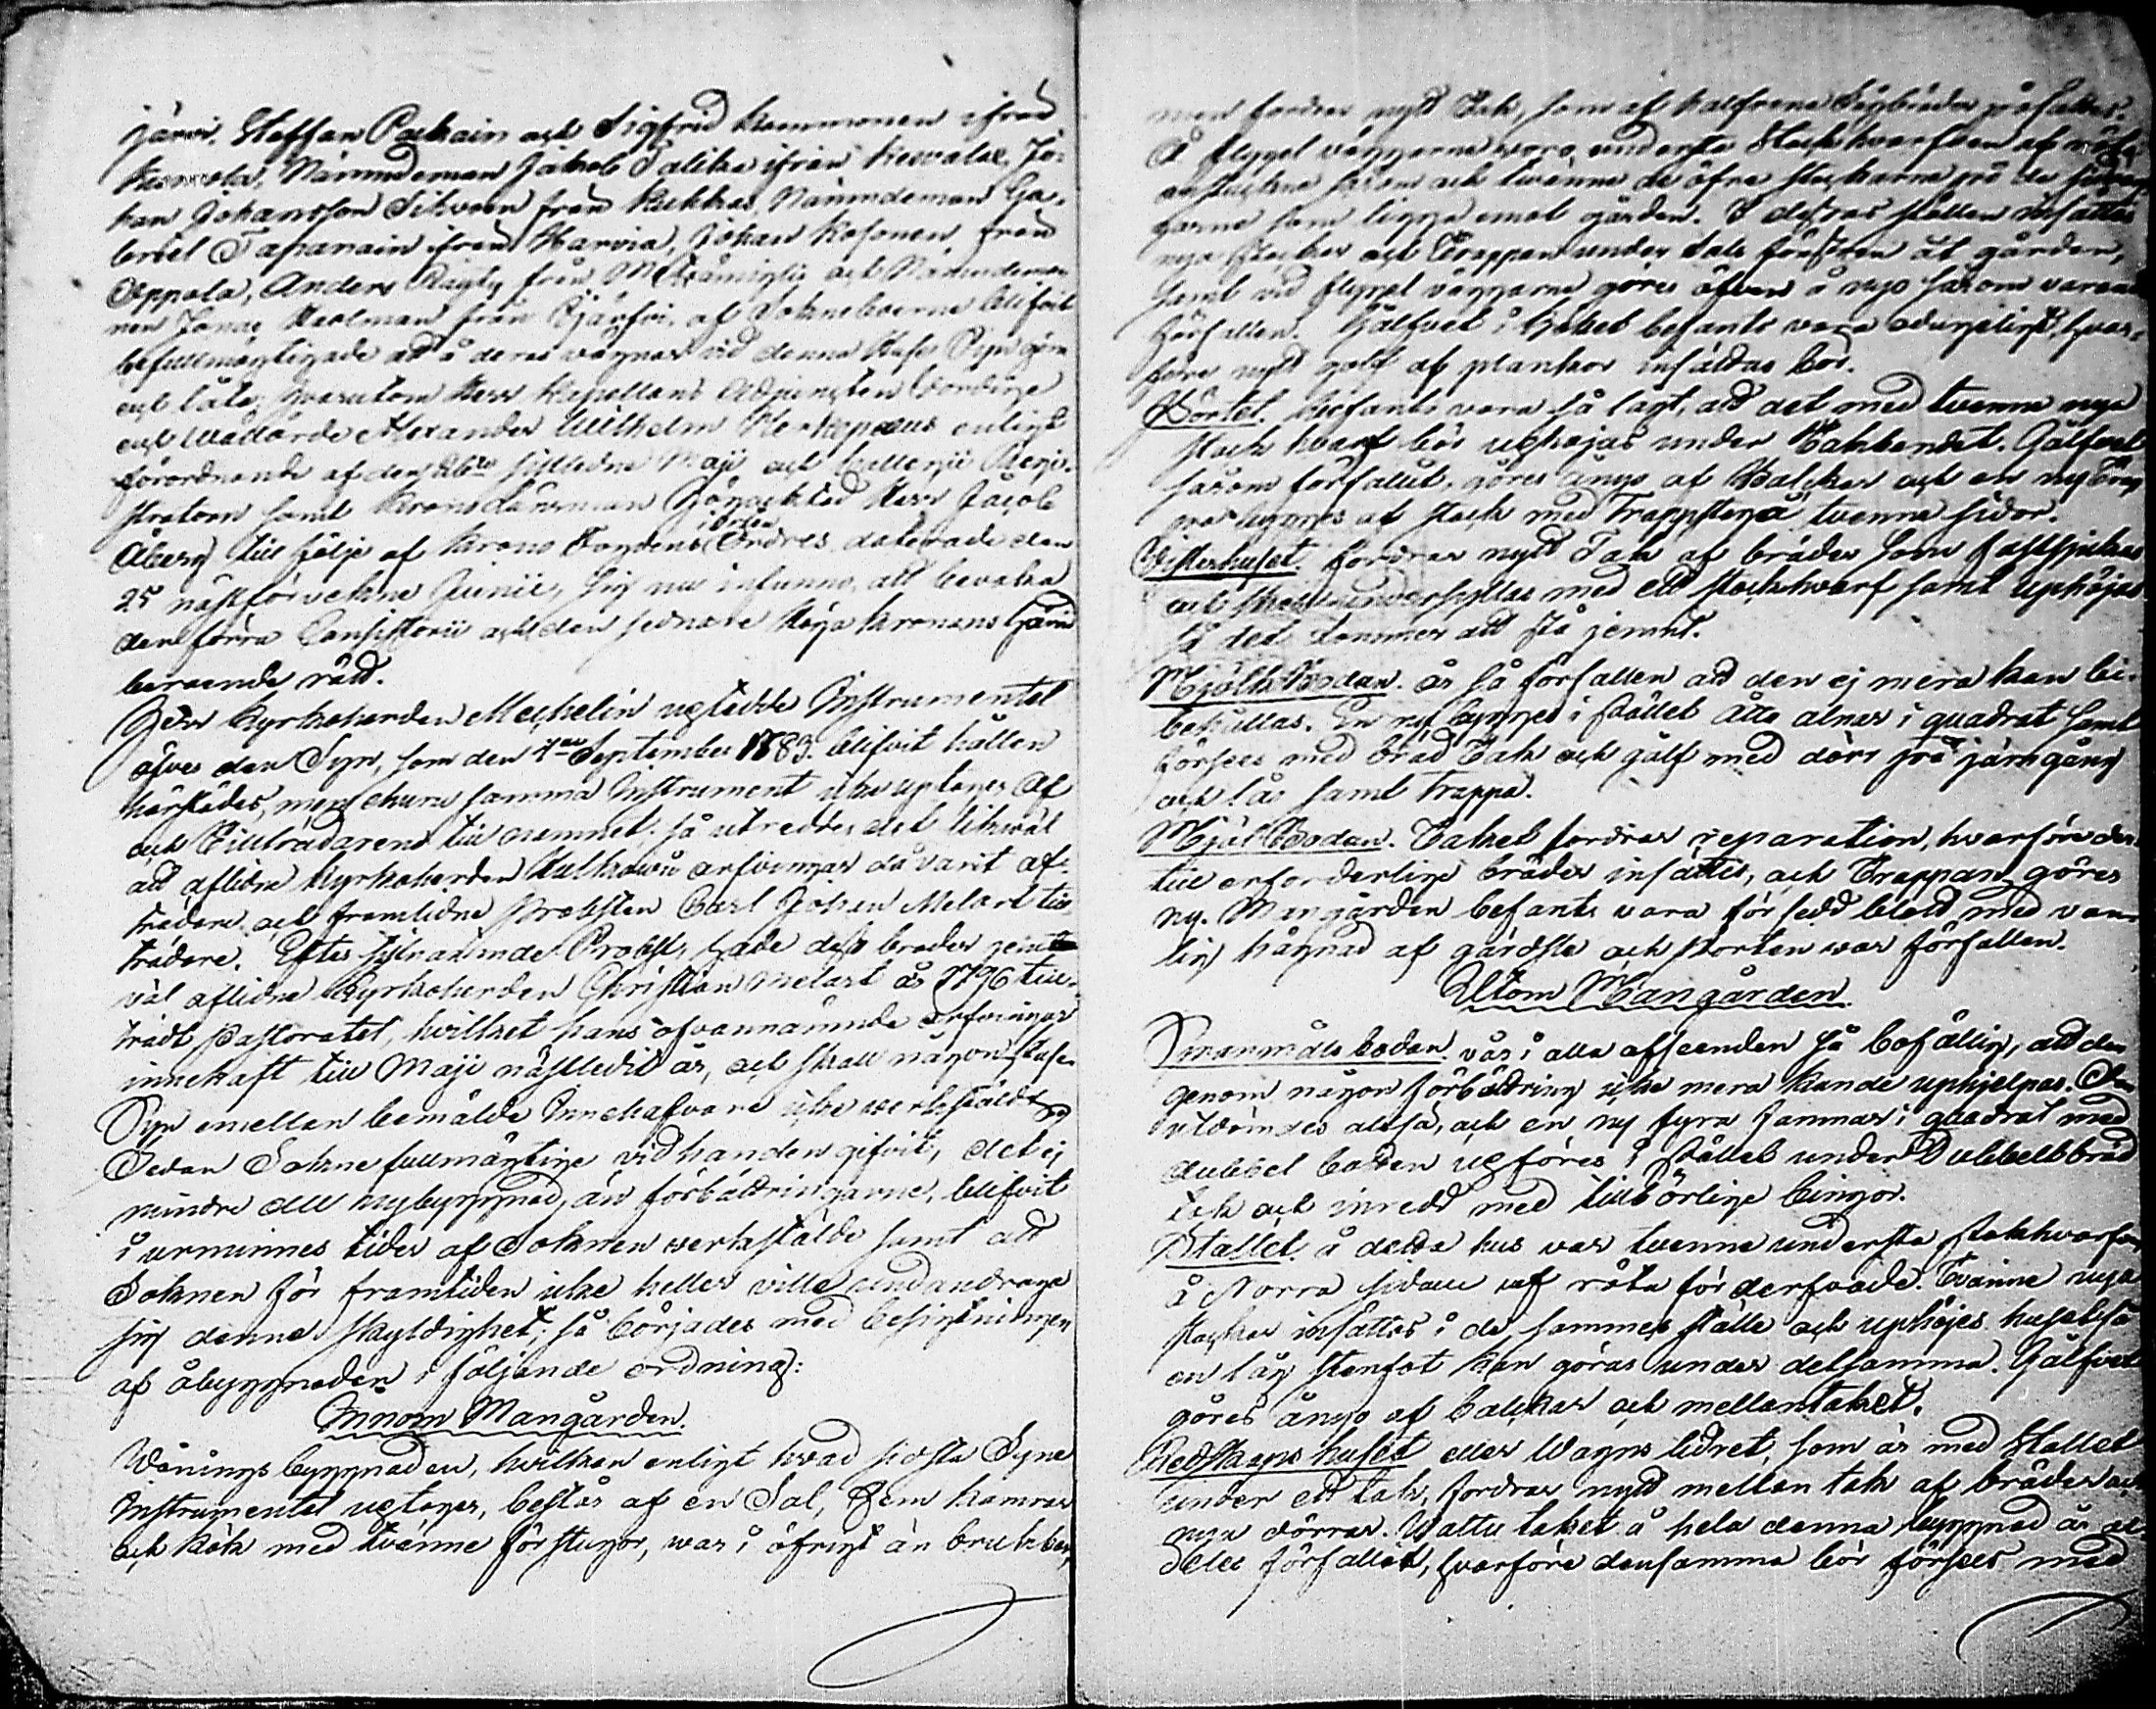 järvi, Staffan Packain och Sigfrid Kummonen ifrån
Nämndeman Jakob Talikka ifrån Kesvalax, Jo-
han Johansson Sihvoin från Kukkas, Nämndeman Ga-
briel Tapanain ifrån Harvia, Johan Kosonen från
Oppola, Anders från och Nämndeman-
nen Jonas från Bjärfvi, af Sokneboerne blifvit
befullmäktigade at å deras vägnar vid denna Huse Syn göra
och låta; hvarutom Herr Kapellans Adjuncten Vördige
och Wällärde Alexander Wilhelm enligt
förordnande af den sistledne Maji och Collegii Regi-
stratorn samt Kronolänsman Högacktad Herr Jacob
Åberg till följe af Krono Fogdens i Orten Ordres daterade den
25 nästförvekne Junii, sig nu infunno, att bevaka
den förra Consistorii och den sednare Höga Kronans härvid
beroende rätt.
Herr Kyrkoherden Mechelin upstedde Instrumentet
öfver den Syn, som den September 1783 blifvit hållen
härstädes, men ehuru samma Instrument icke uptager Af
och Tillträdarens till namnet; så utreddes det likväl
att aflidne Kyrkoherden arfvingar då varit af-
trädare och framlidne Probsten Carl Johan Melart till-
trädare. Efter sistnämnde Probst, hade dess broder jemte
väl aflidne Kyrkoherden Christian Melart år 1796 till-
trädt Pastoratet, hvilket hans ofvannämnde arfvingar
innehaft till Maji nästledit år, och skall någon Huse-
Syn emellan bemälde Innehafvare icke verkstäldts
Sedan Sokne fullmägtige vid handen gifvit, det ej
mindre all nybyggnad, än förbättringarne, blifvit
i urminnes tider af Soknen verkstälde samt att
Soknen för framtiden icke heller ville undandraga
sig denna skyldighet; så börjades med besigtningen
af åbyggnaden i följande ordning:
Innom Mangården.
Wånings byggnaden, hvilken enligt hvad sidsta Syne
Instrumentet uptager, består af en Sal, Fem kamrar
och Kök med tvänne förstugor, war i öfrigt än brukbar,
men fordrar nytt Tak, som af halfrena Sågbräder påsättes.
Å flygel väggarne woro understa Stockhvarfven af röta
anstuckne såsom ock tvänne de öfre stockarne på de
garne som ligga emot gården. I dessas ställen insättas
nya stockar och Trappan under Sals åt gården,
samt vid flygel väggarne göres äfven å nyo såsom varande
förfallen. Gålfvet i Köket befants vara odugeligt, hvar-
före nytt golf af plankor infäldas bör.
Pörtet. befants vara så lagt, att det med tvenne nya
stock hvarf bör uphöjas under Takbandet. Gålfvet
såsom förfallit göres ånyo af Balckar och en ny Trap-
pa bygges af stock med Trappsteg å tvenne sidor.
Visthuset. fordrar nytt Tak af bräder som fastspikas
och skall undersyllas med ett stockhvarf samt uphöjas
så det kommer att stå jemnt.
Mjölk Boden. är så förfallen att den ej mera kan bi-
behållas. En ny bygges i stället åtta alnar i quadrat samt
förses med bräd Tak och gålf med dörr på järngång
och lås samt Trappa.
Mjöl Boden. Taket fordrar reparation, hvarföre der-
till erforderlige bräder insättes, och Trappan göres
ny. Mangården befants vara försedd med van-
lig hägnad af gärdsle och Porten war förfallen.
Utom Mangården
Spanmåls boden. var i alla afseenden så bofällig, att den
genom någon förbättring icke mera kunde uphjelpas. Den
utdömdes altså, och en ny fyra famnar i quadrat med
dubbel botten upföres i stället under Dubbelt bräd
tak och inredd med tillbörlige bingor.
Stallet. å detta hus war tvenne understa stokhvarfven
å Norra sidan af röta förderfvade. Tvänne nya
stockar insättes i de sammas ställe och uphöjes huset så
en låg stenfot kan göras under detsamma. Gålfvet
göres ånyo af balckar och mellantaket.
Redskaps huset eller Wagns lidret, som är med Stallet
under ett tak, fordrar nytt mellan tak af bräder och
nya dörrar. Wattu taket å hela denna byggnad är al-
deles förfallit, hvarföre densamma bör förses med